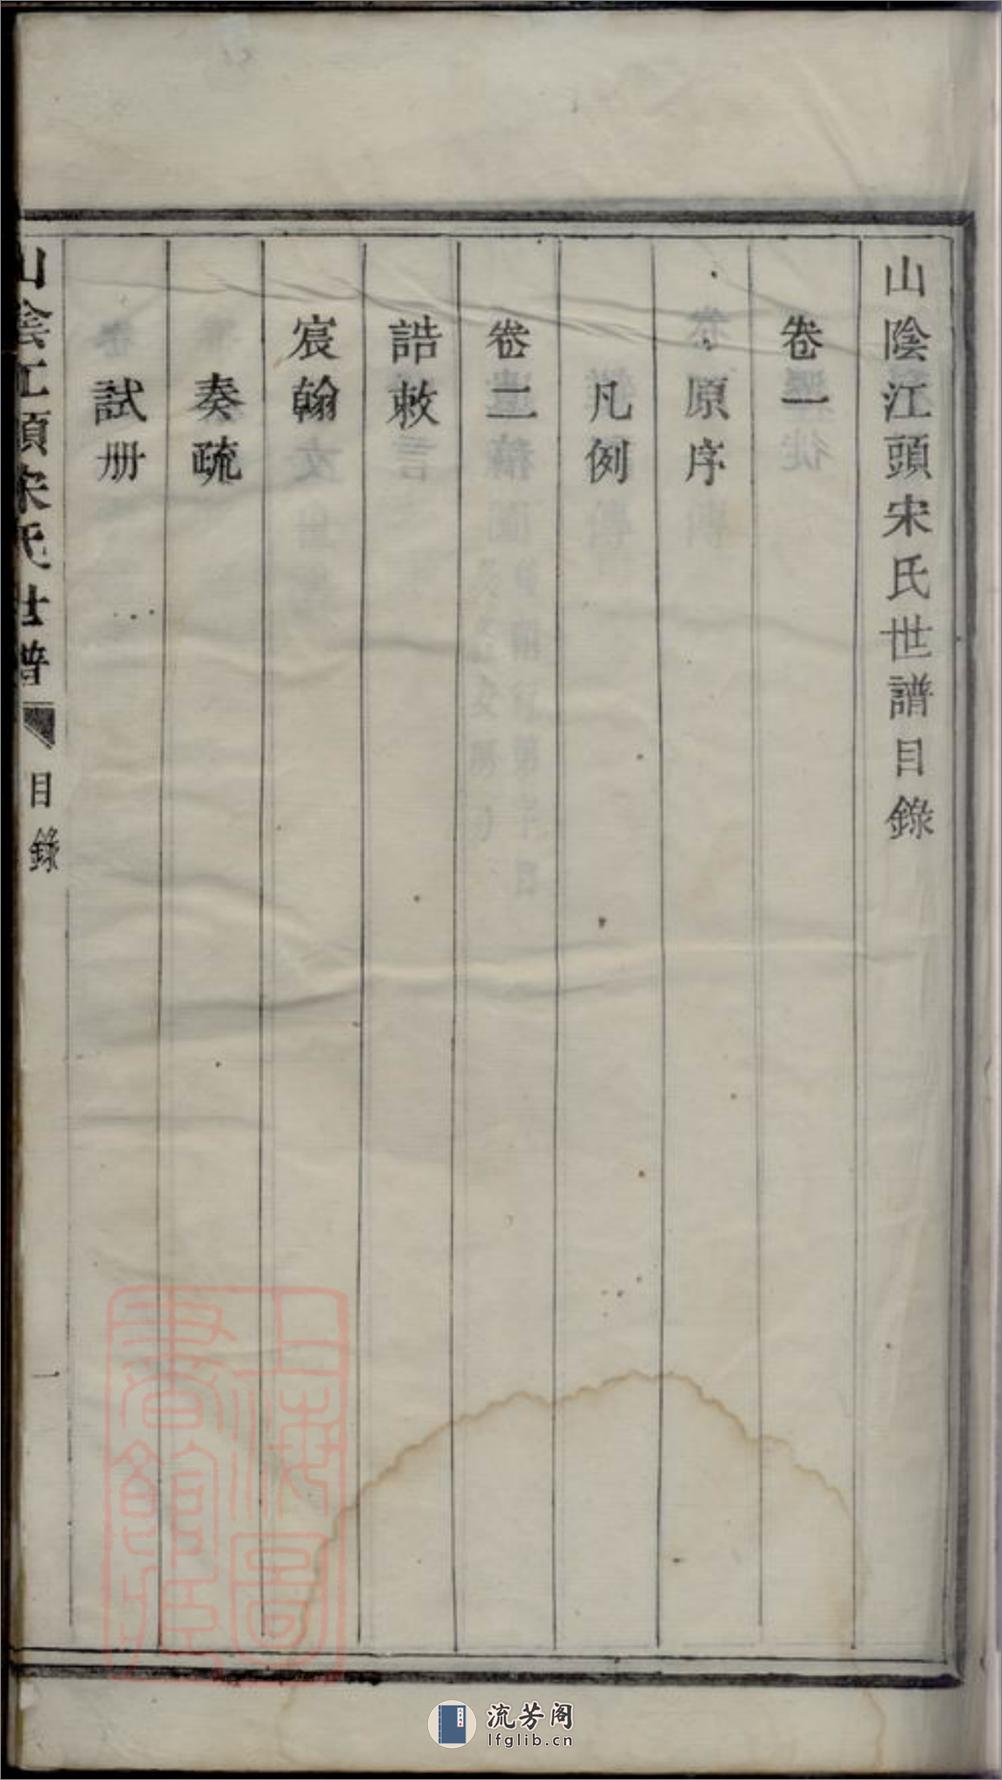 山陰江頭宋氏世譜目錄
卷一
原序
凡例
卷二
誥敕
宸翰
奏疏
試册
山陰江頭宋氏世譜
目錄
一
上海圖書館藏
流芳阁
lfglib.cn